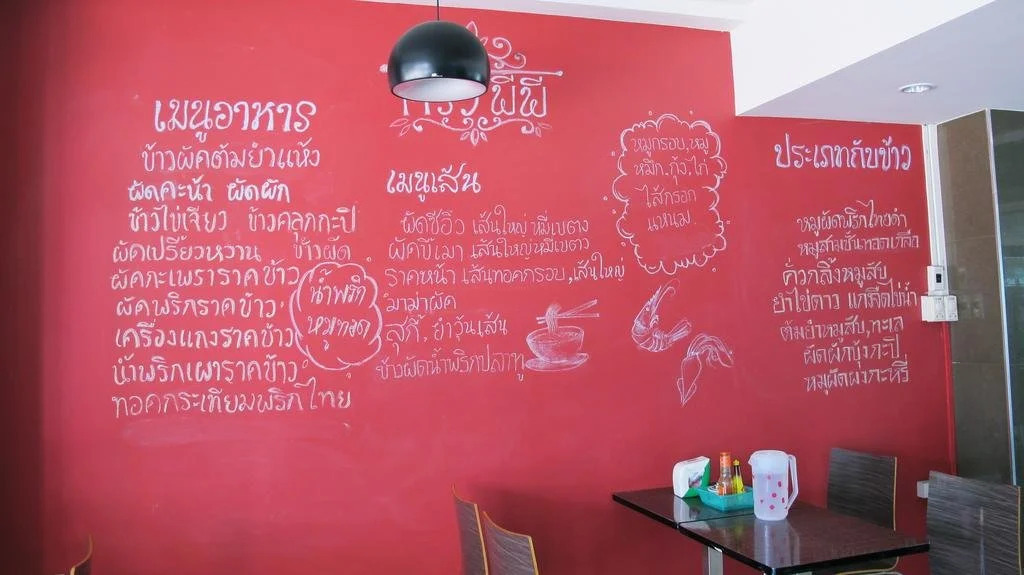 ครัวพีพี
เมนูอาหาร
ข้าวผัดต้มยำแห้ง
ผัดคะน้า ผัดผัก
ข้าวไข่เจียว ข้าวคลุกกะปิ
ผัดเปรี้ยวหวาน ข้าวผัด
ผัดกะเพราราดข้าว
ผัดพริกราดข้าว
เครื่องแกงราดข้าว
น้ำพริกเผาราดข้าว
ทอดกระเทียมพริกไทย
น้ำพริก
หมูทอด
เมนูเส้น
ผัดซีอิ๊ว เส้นใหญ่ หมี่เบตง
ผัดขี้เมา เส้นใหญ่ หมี่เบตง
ราดหน้า เส้นทอดกรอบ, เส้นใหญ่
มาม่าผัด
สุกี้, ยำวุ้นเส้น
ข้าวผัดน้ำพริกปลาทู
หมูกรอบ, หมู
หมึก, กุ้ง, ไก่
ไส้กรอก
แหนม
ประเภทกับข้าว
หมูผัดพริกไทยดำ
หมูสามชั้นทอดเกลือ
คั่วกลิ้งหมูสับ
ยำไข่ดาว แกงจืดไข่น้ำ
ต้มยำหมูสับ, ทะเล
ผัดผักบุ้งกะปิ
หมูผัดผงกะหรี่